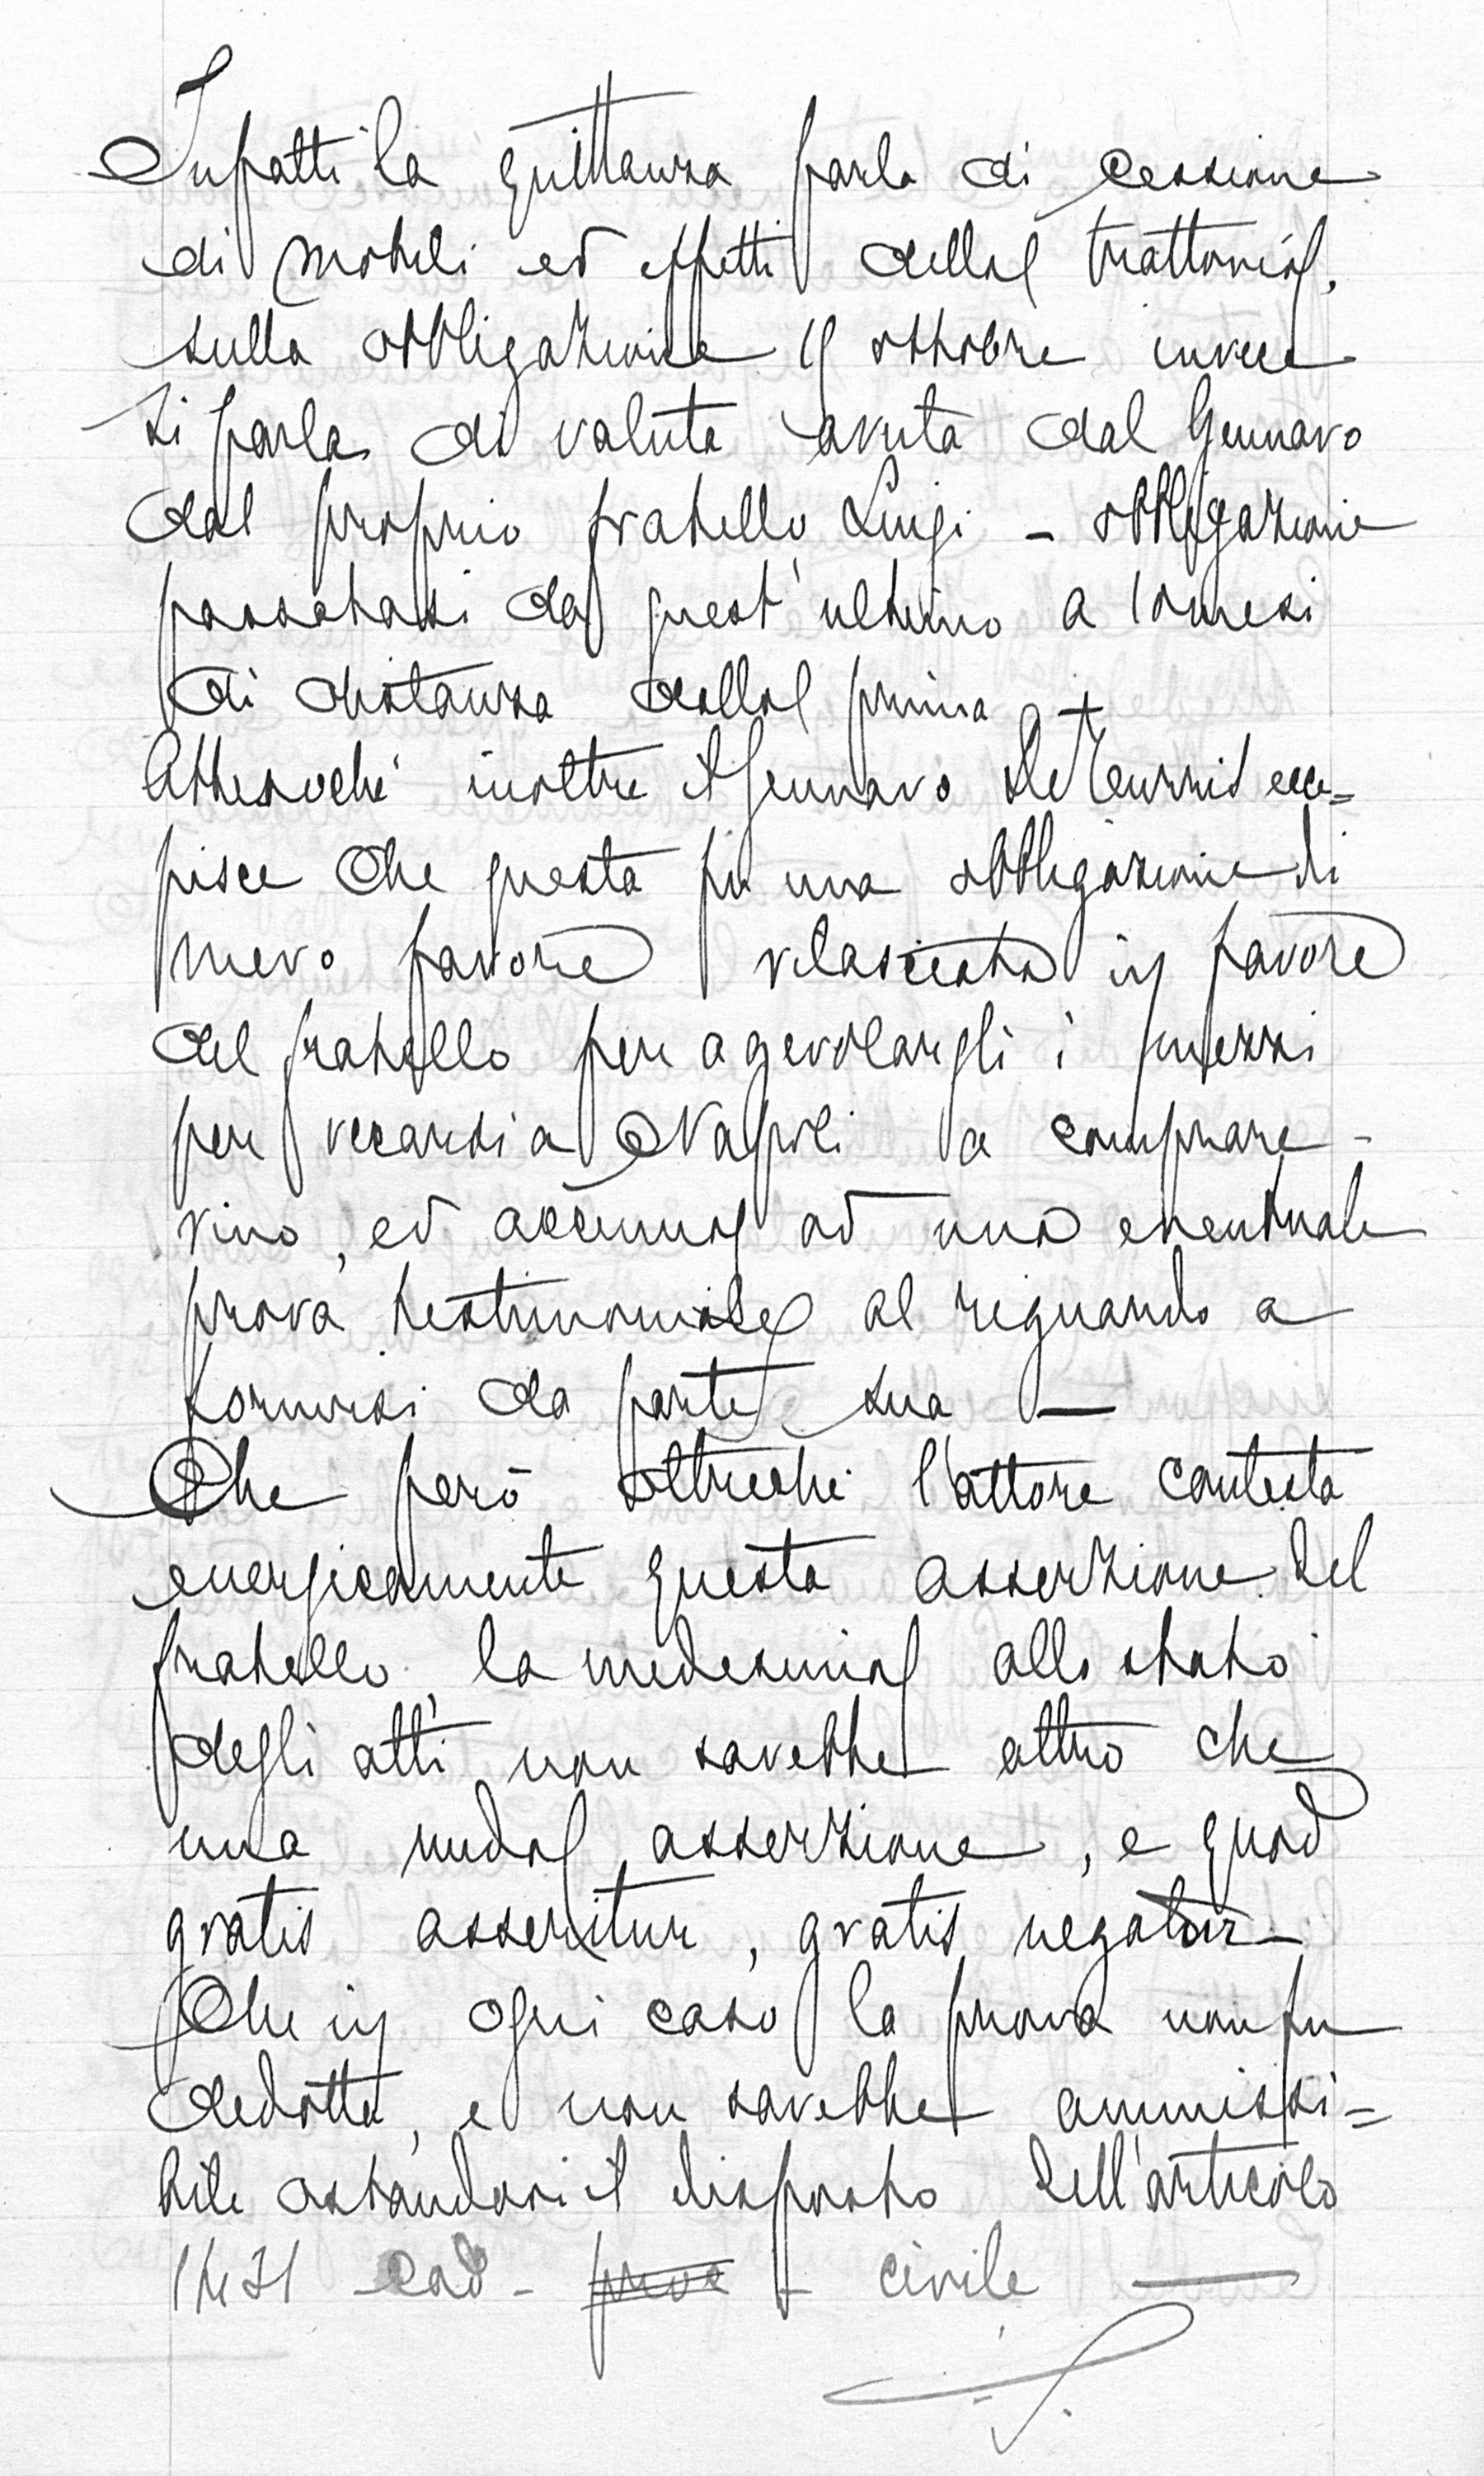 Infatti la quittanza parla di cessione
di mobili ed effetti della trattoria,
sulla obbligazione 19 ottobre invece
si parla di valuta avuta dal Gennaro
dal proprio fratello Luigi - obbligazione
passatasi da quest'ultimo a 10 mesi
di distanza dalla prima
Attesochè inoltre il Gennaro De Turris ecce=
pisce che questa fu una obbligazione di
mero favore rilasciata in favore
del fratello per agevolargli i mezzi
per recarsi a Napoli a comprare -
vino, ed accenna ad una eventuale
prova testimoniale al riguardo a
fornirsi da parte sua —
Che però oltrechè l'attore contesta
energicamente questa asserzione del
fratello, la medesima allo stato
degli atti non sarebbe altro che
una nuda asserzione, e quod
gratis asseritur, gratis negatur -
Che in ogni caso la prova non fu
dedotta, e non sarebbe ammissi=
bile ostandovi il disposto dell'articolo
Cod - proc - civile —